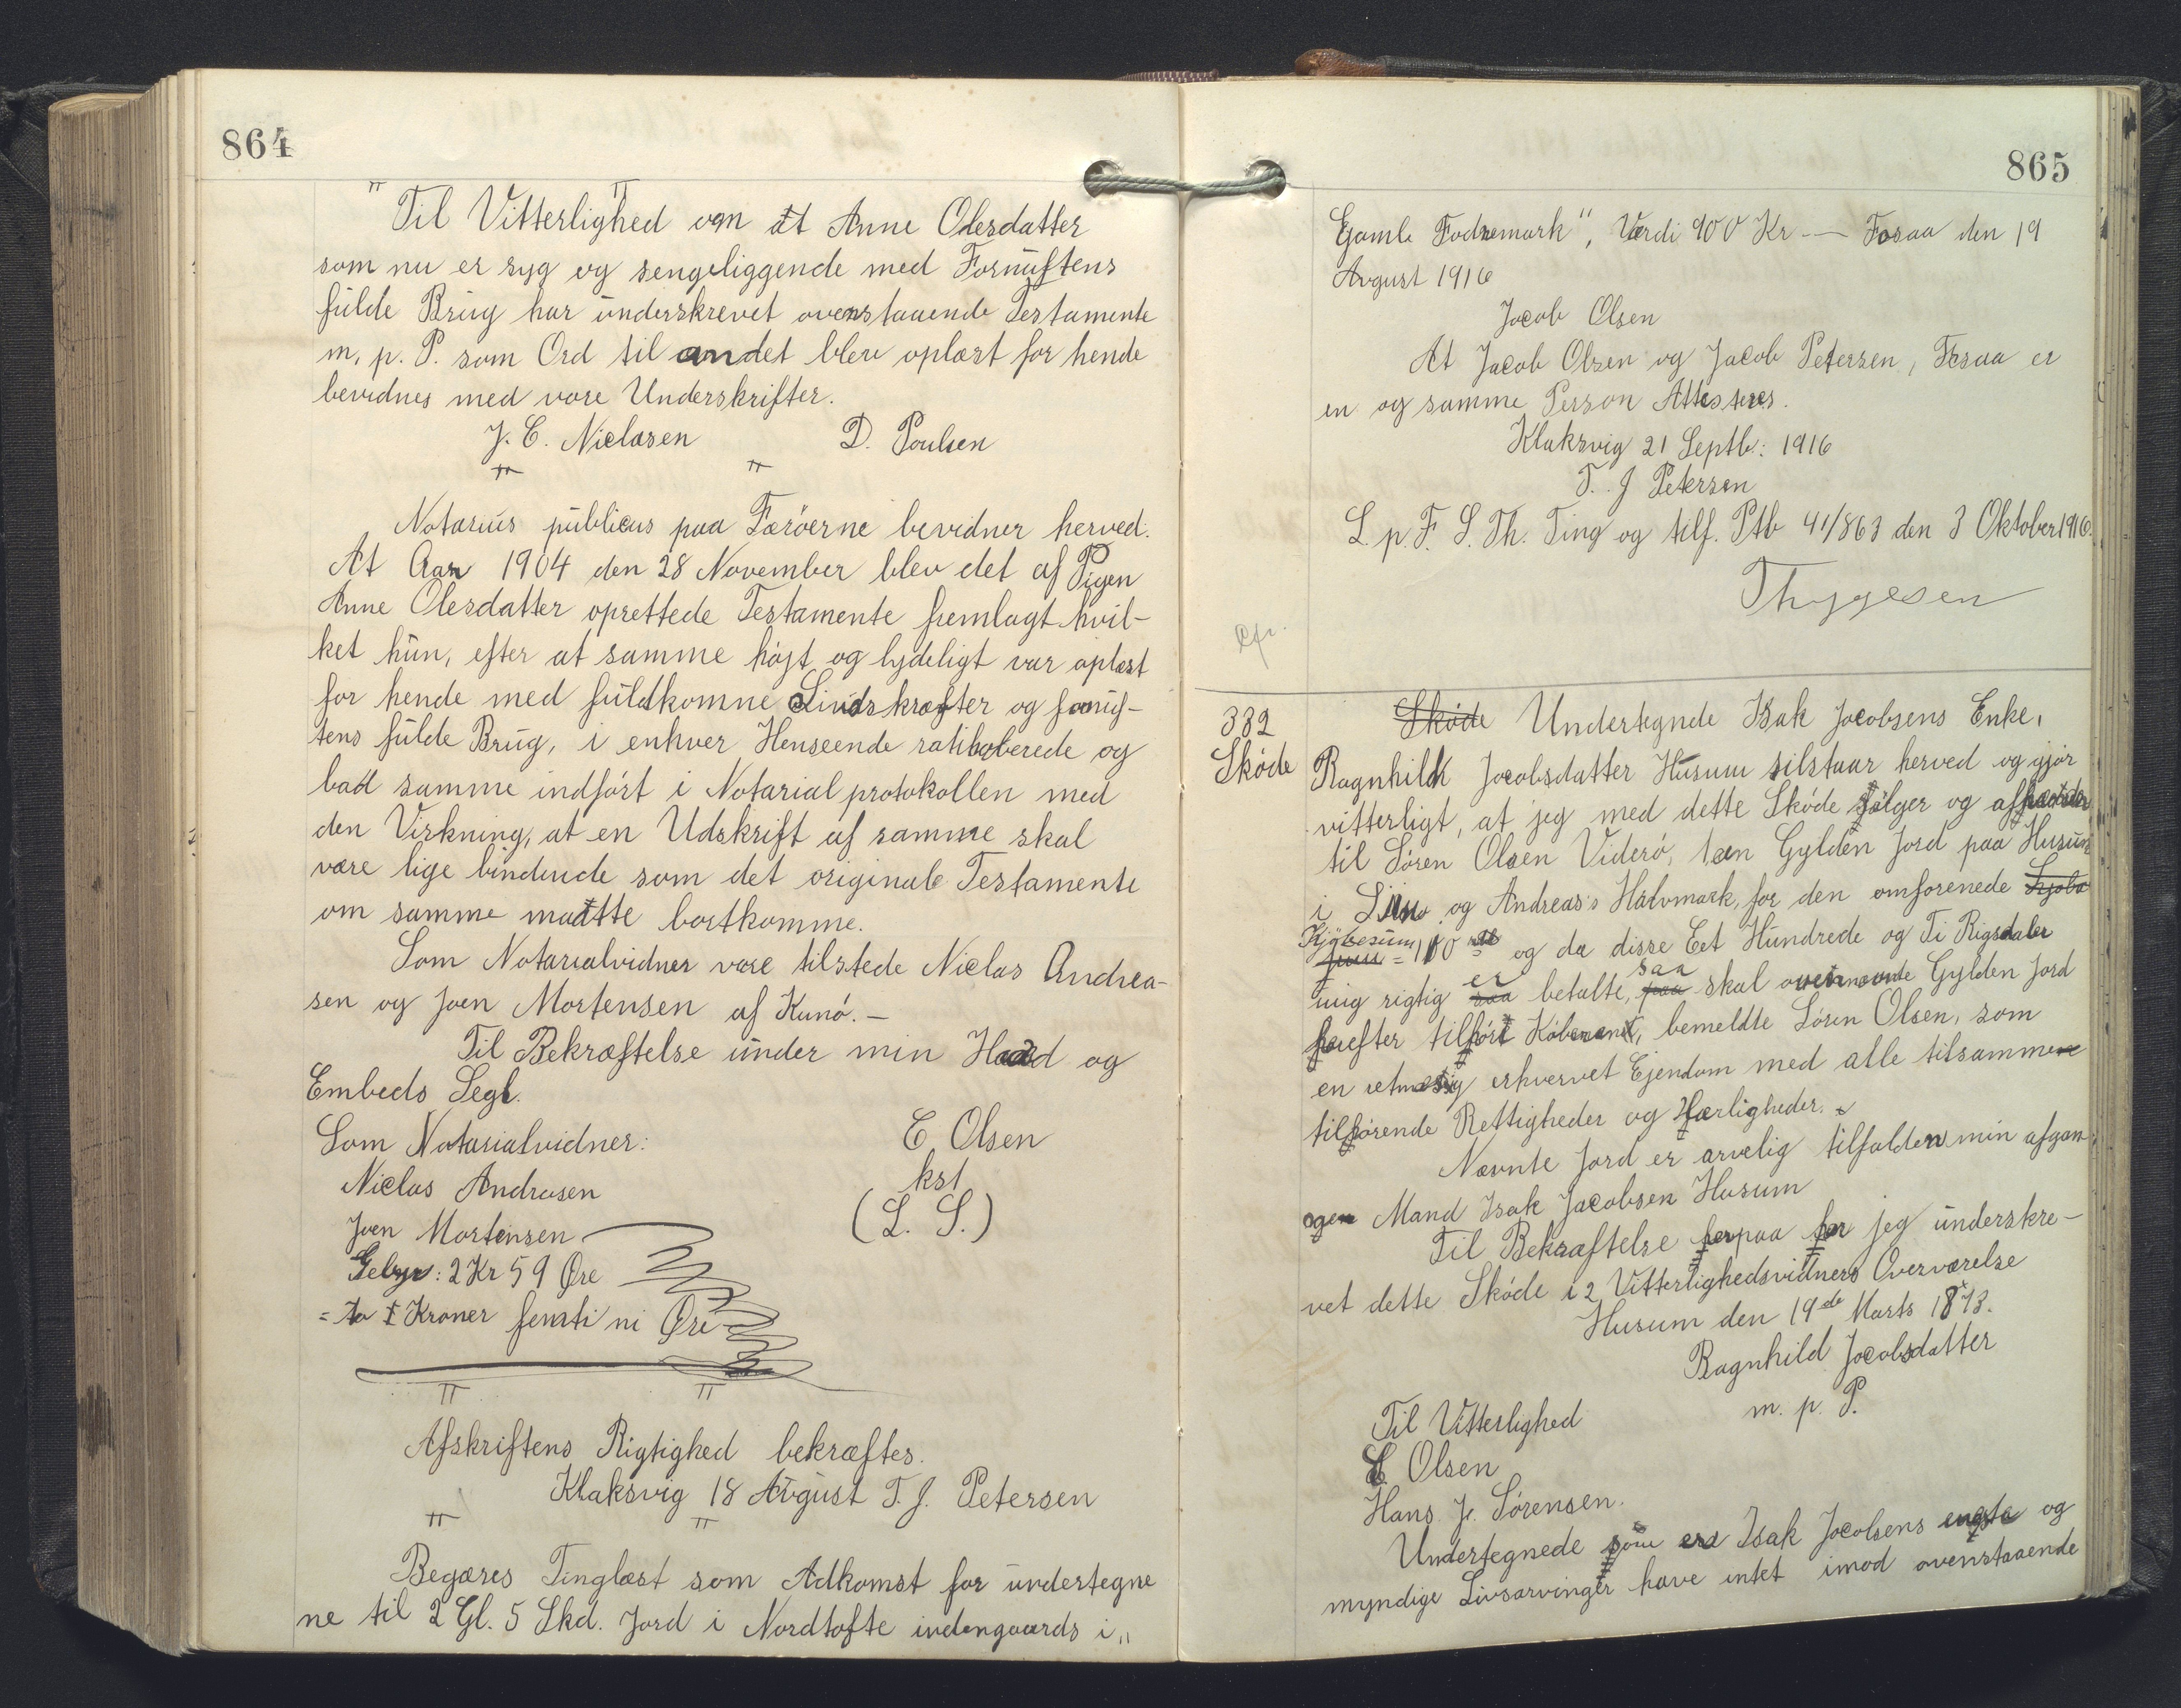 864
"Til Vitterlighed om at Anne Olesdatter
som nu er syg og sengeliggende med Fornuftens
fulde Brug har underskrevet ovenstaaende Testamente
m. p. P. som Ord til andet blev oplæst for hende
bevidnes med vore Underskrifter.
J. C. Niclasen D. Poulsen
Notarius publicus paa Færöerne bevidner herved:
At Aar 1904 den 28 November blev det af Pigen
Anne Olesdatter oprettede Testamente fremlagt hvil-
ket hun, efter at samme højt og lydeligt var oplæst
for hende med fuldkomne Sindskræfter og fornuf-
tens fulde Brug, i enhver Henseende ratihaberede og
bad samme indført i Notarialprotokollen med
den Virkning, at en Udskrift af samme skal
være lige bindende som det originale Testamente
om samme maatte bortkomme.
Som Notarialvidner vare tilstede Niclas Andrea-
sen og Joen Mortensen af Kunø. -
Til Bekræftelse under min Haand og
Embeds Segl.
Som Notarialvidner: C. Olsen
Niclas Andreasen kst
Joen Mortensen (L. S.)
Gebyr: 2 Kr 59 Øre
= to Kroner femti ni Øre
Afskriftens Rigtighed bekræftes.
Klaksvig 18 August T. J. Petersen
Begæres Tinglæst som Adkomst for undertegne
ne til 2 Gl. 5 Skd. Jord i Nordtofte indengaards i "
865
Gamle Fodremark", Værdi 900 Kr — Fosaa den 19
August 1916
Jacob Olsen
At Jacob Olsen og Jacob Petersen, Fosaa er
en og samme Person Attesteres.
Klaksvig 21 Septb: 1916
T. J Petersen
L. p. F. S. Th. Ting og tilf. Ptb 41/863 den 3 Oktober 1916.
Thygesen
Cfr.
382
Skøde
Skøde Undertegnede Isak Jacobsens Enke,
Ragnhild Jacobsdatter Husum tilstaar herved og gjør
vitterligt, at jeg med dette Skøde sælger og afhænder
til Søren Olsen Viderø, 1 en Gylden Jord paa Husum
i og Andreas's Halvmark, for den omforenede
Kjøbesum 110 og da disse Eet Hundrede og Ti Rigsdaler
mig rigtig er betalte, saa skal ovennævnte Gylden Jord
herefter tilhøre Køberen, bemeldte Søren Olsen, som
en retmæsig erhvervet Ejendom med alle tilsammen
tilhørende Rettigheder og Herligheder.
Nævnte Jord er arvelig tilfalden min afgan-
gen Mand Isak Jacobsen Husum
Til Bekræftelse herpaa har jeg underskre-
vet dette Skøde i 2 Vitterlighedsvidners Overværelse
Husum den 19de Marts 1873.
Ragnhild Jacobsdatter
m. p. P.
Til Vitterlighed
Olsen
Hans J. Sørensen.
Undertegnede som ere Isak Jacobsens og
myndige Livsarvinger have intet imod ovenstaaende